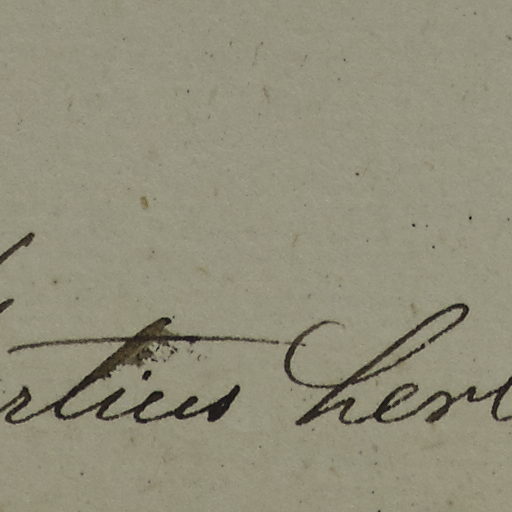 rtius her